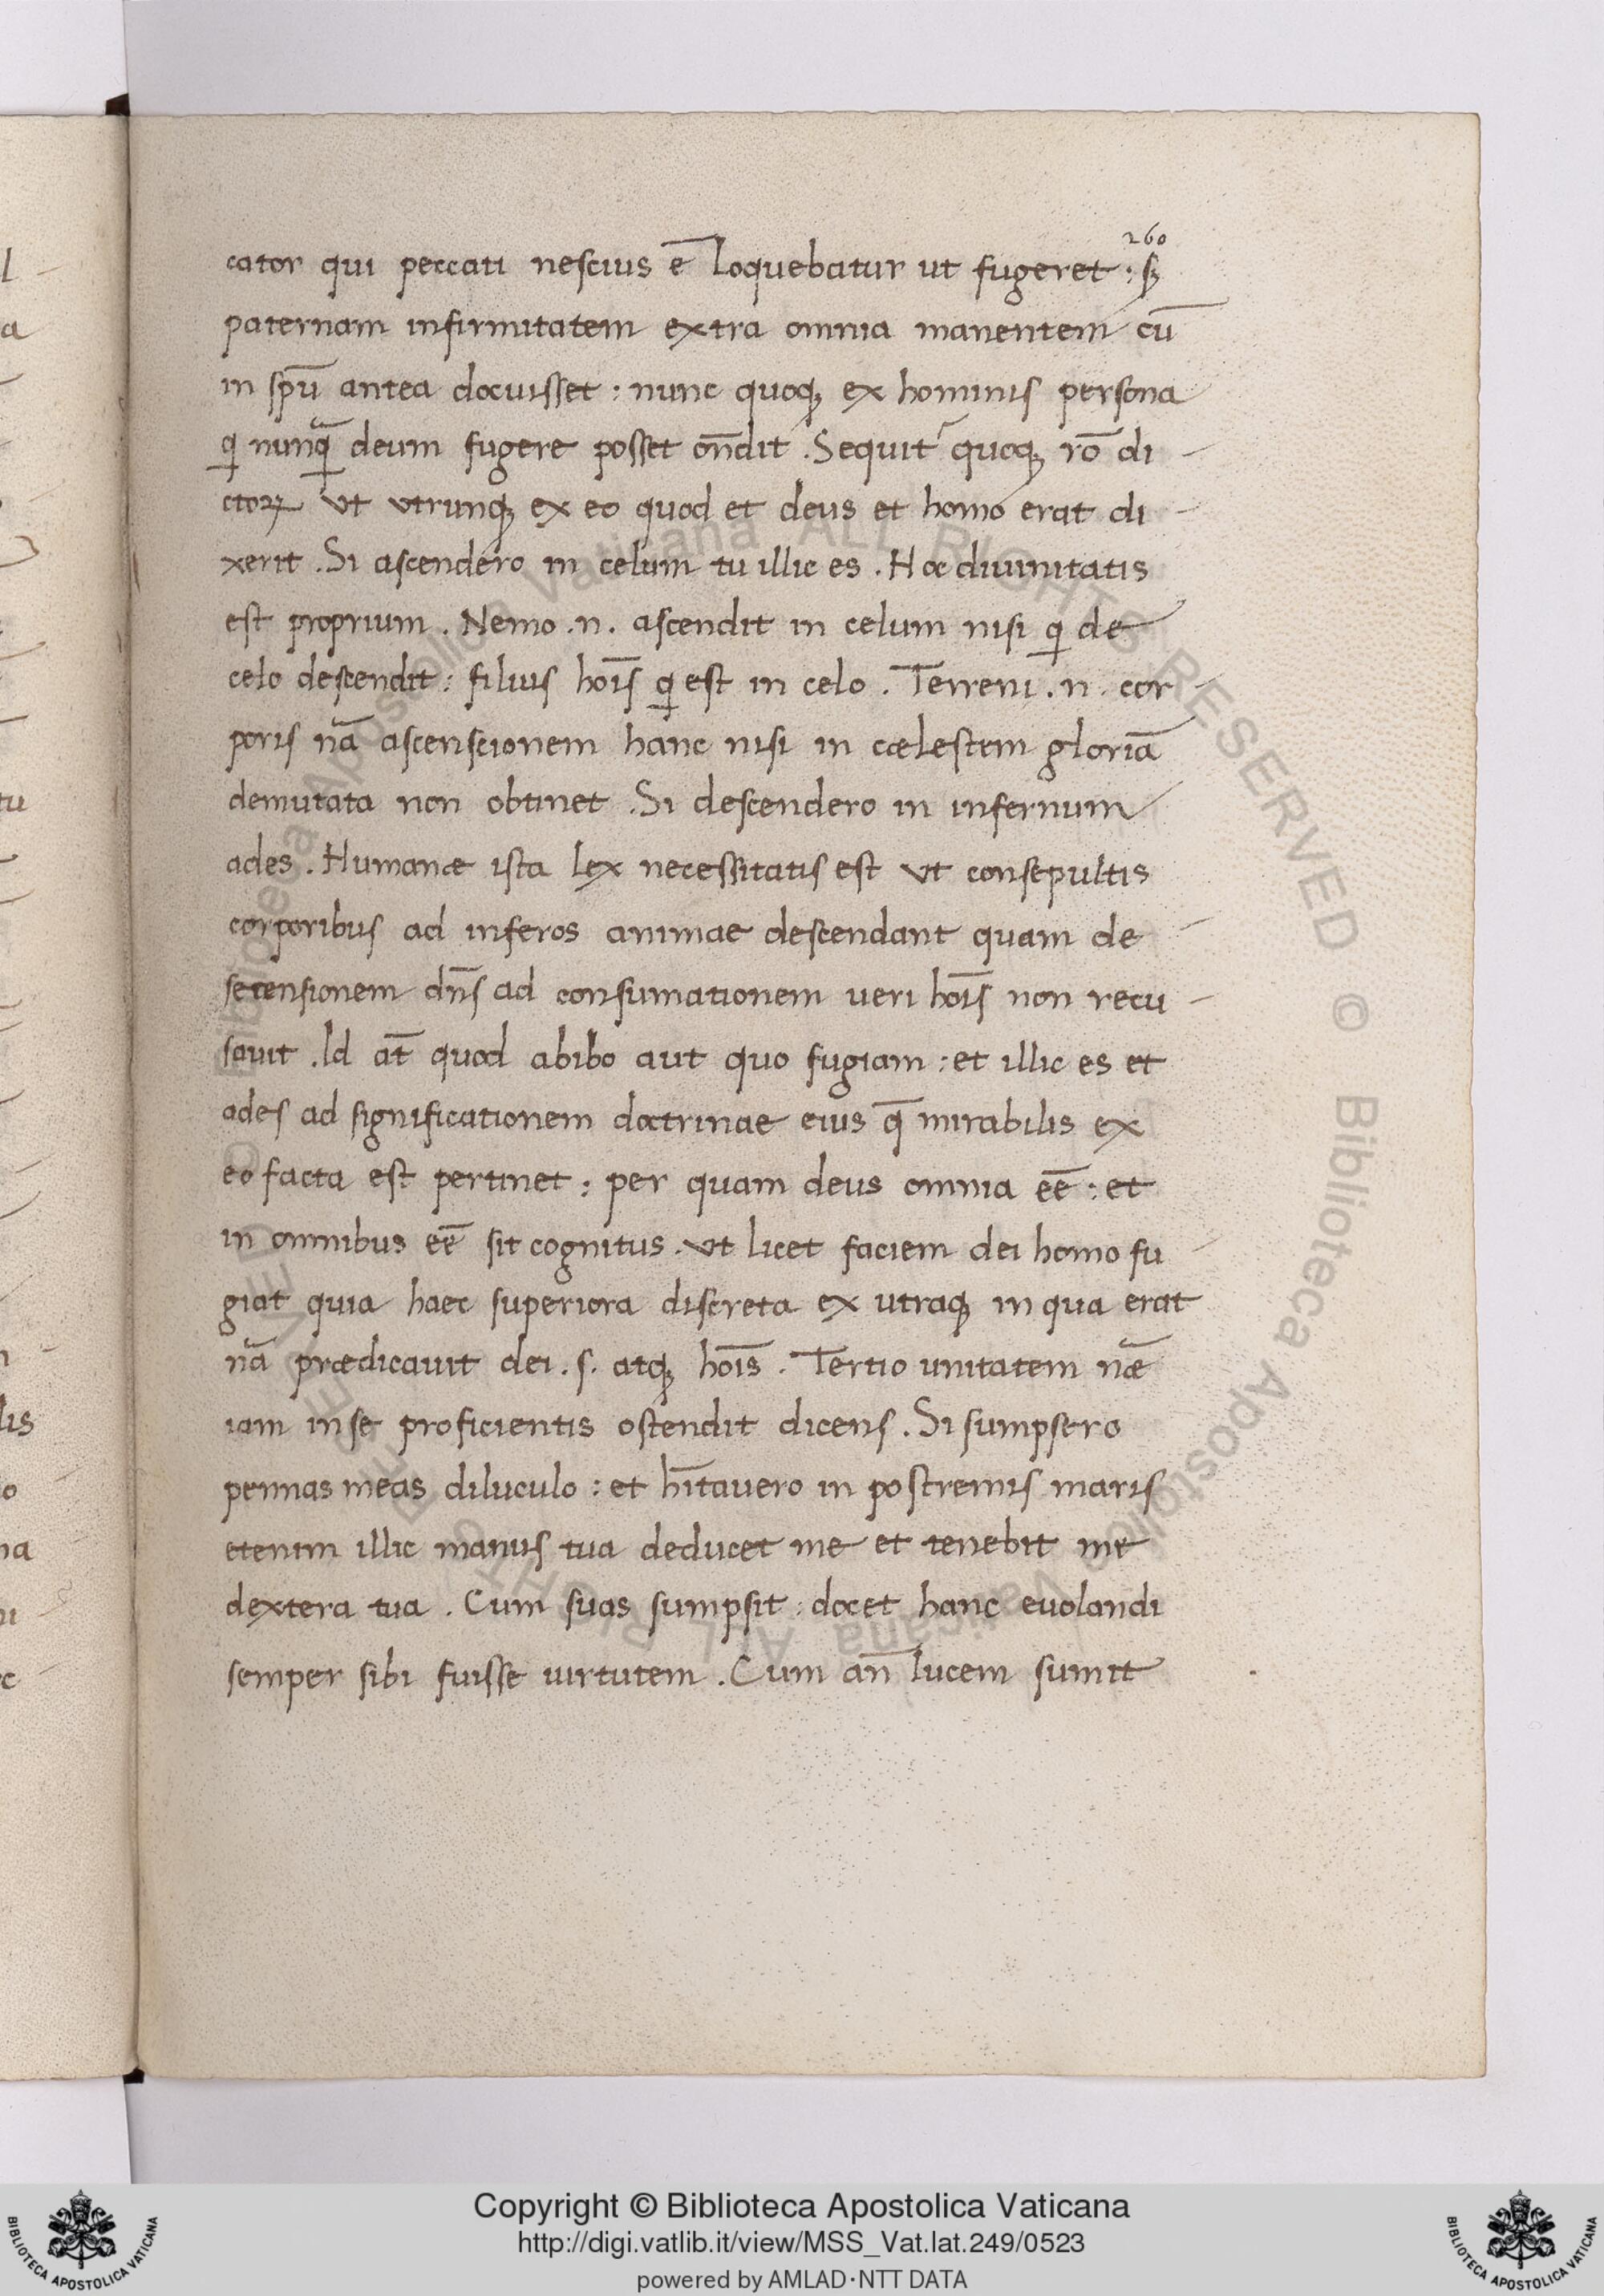 260
cator qui peccati nescius ē loquebatur ut fugeret : sꝫ
paternam infirmitatem extra omnia manentem cū
in spū antea docuisset : nunc quoqꝫ ex hominis persona
qi nunq̄ deum fugere posset on̄dit . Sequit᷑ quoqꝫ rō di
ctoꝝ ut utrunqꝫ ex eo quod et deus et homo erat di
xerit . Si ascendero in celum tu illic es . Hoc diuinitatis
est proprium . Nemo .n. ascendit in celum nisi qi de
celo descendit : filius hoīs qi est in celo . Terreni .n. cor
poris nā ascenscionem hanc nisi in cælestem gloriā
demutata non obtinet . Si descendero in infernum
ades . Humanæ ista lex necessitatis est ut consepultis
corporibus ad inferos animae descendant quam de
scensionem dn̄s ad consumationem ueri hoīs non recu
sauit . Id at̄ quod abibo aut quo fugiam : et illic es et
ades ad significationem doctrinae eius q̄ mirabilis ex
eo facta est pertinet : per quam deus omnia eē : et
in omnibus eē sit cognitus . ut licet faciem dei homo fu
giat quia haec superiora discreta ex utraqꝫ in qua erat
nā prædicauit dei . s . atqꝫ hoīs . Tertio unitatem nǣ
iam in se proficientis ostendit dicens . Si sumpsero
pennas meas diluculo : et hītauero in postremis maris
etenim illic manus tua deducet me et tenebit me
dextera tua . Cum suas sumpsit : docet hanc euolandi
semper sibi fuisse uirtutem . Cum an̄ lucem sumit
Copyright © Biblioteca Apostolica Vaticana
http://digi.vatlib.it/view/MSS_Vat.lat.249/0523
powered by AMLAD·NTT DATA
BIBLIOTECA APOSTOLICA VATICANA
BIBLIOTECA APOSTOLICA VATICANA